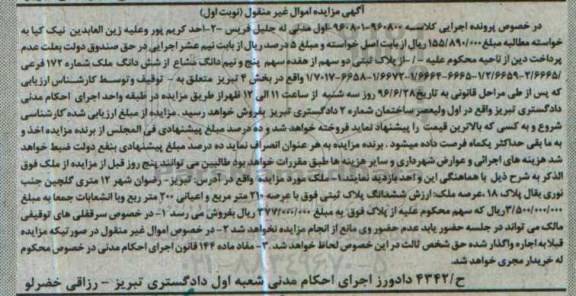 آگهی مزایده اموال غیر منقول (نوبت اول)
در خصوص پرونده اجرایی کلاسه ۹۶۰۸۰۰-۱-۹۶۰۸ اول مدنی له جلیل فریس -۲-احد کریم پور وعلیه زین العابدین نیک کیا به
خواسته مطالبه مبلغ ۱۵۵/۸۹۰/۰۰۰ ریال از بابت اصل خواسته و مبلغ ۵ درصد ریال از بابت نیم عشر اجرایی در حق صندوق دولت بعلت عدم
پرداخت دین از ناحیه محکوم علیه -/-از پلاک ثبتی دو سهم از هفده سهم پنج و نیم دانگ مشاع از شش دانگ ملک شماره ۱۷۲ فرعی
۲/۶۶۶۵/-۱/۲/۶۶۵۹-۶۶۶۵-۱/۶۶۶۴-۱/۶۶۷۲-۶۶۵۸-۱/۷۰۱۷ واقع در بخش ۴ تبریز متعلق به - توقیف و توسط کارشناس ارزیابی
که پس از طی مراحل قانونی به تاریخ ۹۶/۶/۲۸ روز سه شنبه از ساعت ۱۱ الی ۱۲ ظهر از طریق مزایده در طبقه واحد اجرای احکام مدنی
دادگستری تبریز واقع در اول ولیعصر ساختمان شماره ۲ دادگستری تبریز بفروش خواهد رسید. مزایده از مبلغ ارزیابی شده کارشناسی
شروع و به کسی که بالاترین قیمت را پیشنهاد نماید فروخته خواهد شد و ده درصد مبلغ پیشنهادی فی المجلس از برنده مزایده اخذ و
به ما بقی حداکثر یکماه فرصت داده میشود. برنده مزایده به هر عنوان انصراف نماید ده درصد مبلغ پیشنهادی بنفع دولت ضبط خواهد
شد هزینه های اجرائی و عوارض شهرداری و سایر هزینه ها طبق مقررات خواهد بود طالبین می توانند پنج روز قبل از مزایده از ملک فوق
الذکر به شرح ذیل با هماهنگی این واحد بازدید نمایند.۱- ملک مورد مزایده واقع در آدرس: تبریز- رضوان شهر ۱۲ متری گلچین جنب
نوری بقال پلاک ۱۸ .عرصه ملک: ارزش ششدانگ پلاک ثبتی فوق با عرصه ۲۱۰ متر مربع و اعیانی ۲۰۰ متر ربع وبا انشعابات جمعا به مبلغ
۳/۵۰۰/۰۰۰/۰۰۰ ریال که سهم محکوم علیه از پلاک فوق به مبلغ ۳۷۷/۰۰۰/۰۰۰ ریال بفروش می رسد ۱- در خصوص سرقفلی های توقیفی
مالک می تواند در جلسه حضور یابد عدم حضور وی مانع از انجام مزایده نخواهد شد ۲- در خصوص اموال غیر منقول در صورتیکه مزایده
قبلا به اجاره واگذار شده حق شخص ثالث در این خصوص لحاظ خواهد شد. ۳- مفاد ماده ۱۴۴ قانون اجرای احکام مدنی در خصوص محکوم
له خریدار مجری خواهد شد.
ح/۴۳۴۲ دادورز اجرای احکام مدنی شعبه اول دادگستری تبریز - رزاقی خضرلو